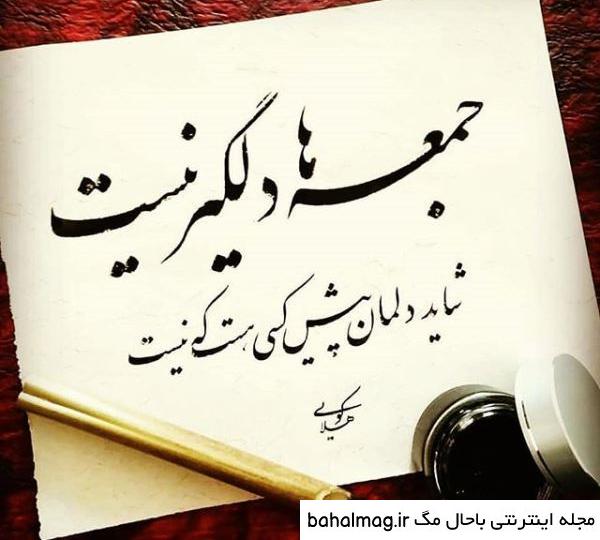 جمعه ها دلگیر نیست
شاید دلمان پیش کسی هست که نیست
مجله اینترنتی باحال مگ bahalmag.ir